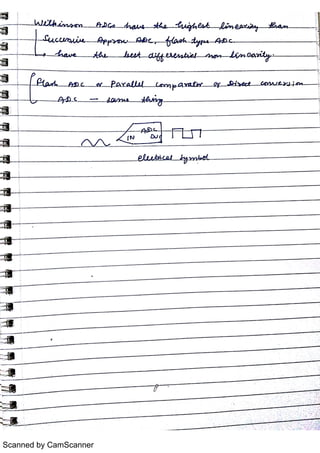 Wilkinson ADCs have the highest linearity than
Successive Approx ADC, flash type ADC
have the best differential non linearity.
Flash ADC or Parallel comparator or Direct conversion
ADC - same thing.
ADC
IN OUT
electrical symbol
Scanned by CamScanner